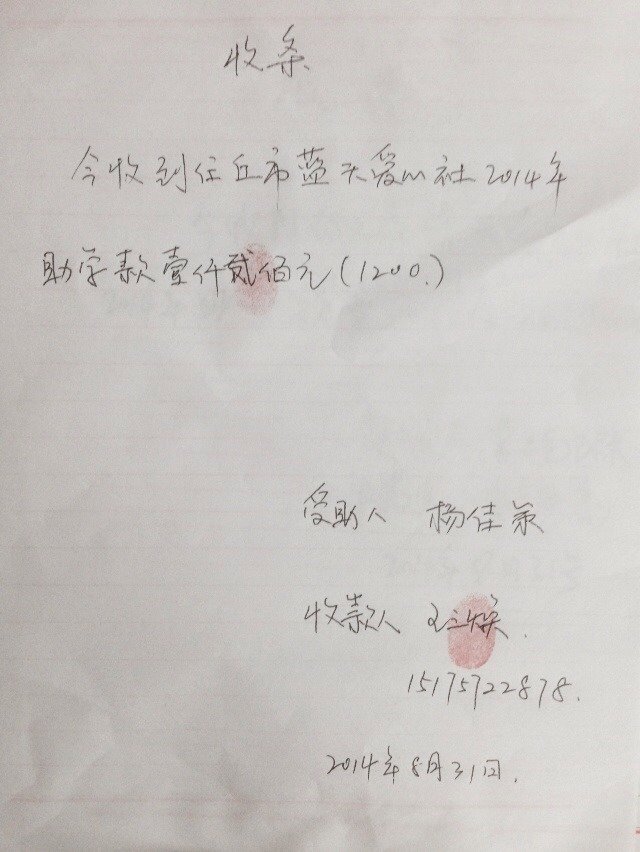 收条
今收到任丘市蓝天爱心社2014年
助学款壹仟贰佰元(1200.)
受助人 杨佳策
收款人 王立焕.
15175722878.
2014年8月31日.